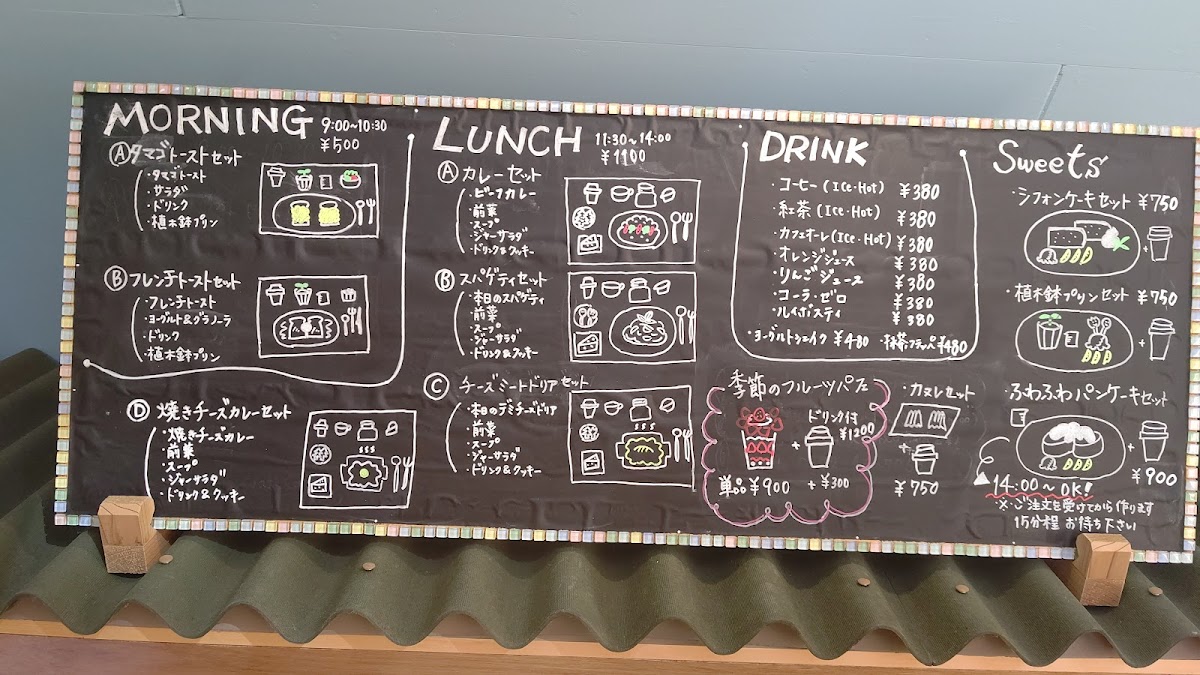 MORNING 9:00~10:30
¥500
Ⓐタマゴトーストセット
・タマゴトースト
・サラダ
・ドリンク
・植木鉢プリン
Ⓑフレンチトーストセット
・フレンチトースト
・ヨーグルト&グラノーラ
・ドリンク
・植木鉢プリン
LUNCH 11:30~14:00
¥1100
Ⓐカレーセット
・ビーフカレー
・前菜
・スープ
・ジャーサラダ
・ドリンク&クッキー
Ⓑスパゲティセット
・本日のスパゲティ
・前菜
・スープ
・ジャーサラダ
・ドリンク&クッキー
Ⓒチーズミートドリアセット
・本日のデミチーズドリア
・前菜
・スープ
・ジャーサラダ
・ドリンク&クッキー
Ⓓ焼きチーズカレーセット
・焼きチーズカレー
・前菜
・スープ
・ジャーサラダ
・ドリンク&クッキー
DRINK
・コーヒー(Ice・Hot) ¥380
・紅茶(Ice・Hot) ¥380
・カフェオーレ(Ice・Hot) ¥380
・オレンジジュース ¥380
・りんごジュース ¥380
・コーラ・ゼロ ¥380
・ルイボスティ ¥380
・ヨーグルトシェイク ¥480
¥480
季節のフルーツパフェ
ドリンク付
¥1200
+
単品¥900 +¥300
・カヌレセット
+
¥750
Sweets
・シフォンケーキセット ¥750
+
・植木鉢プリンセット ¥750
+
・ふわふわパンケーキセット
+
¥900
14:00~OK!
※・ご注文を受けてから作ります
15分程お待ち下さい